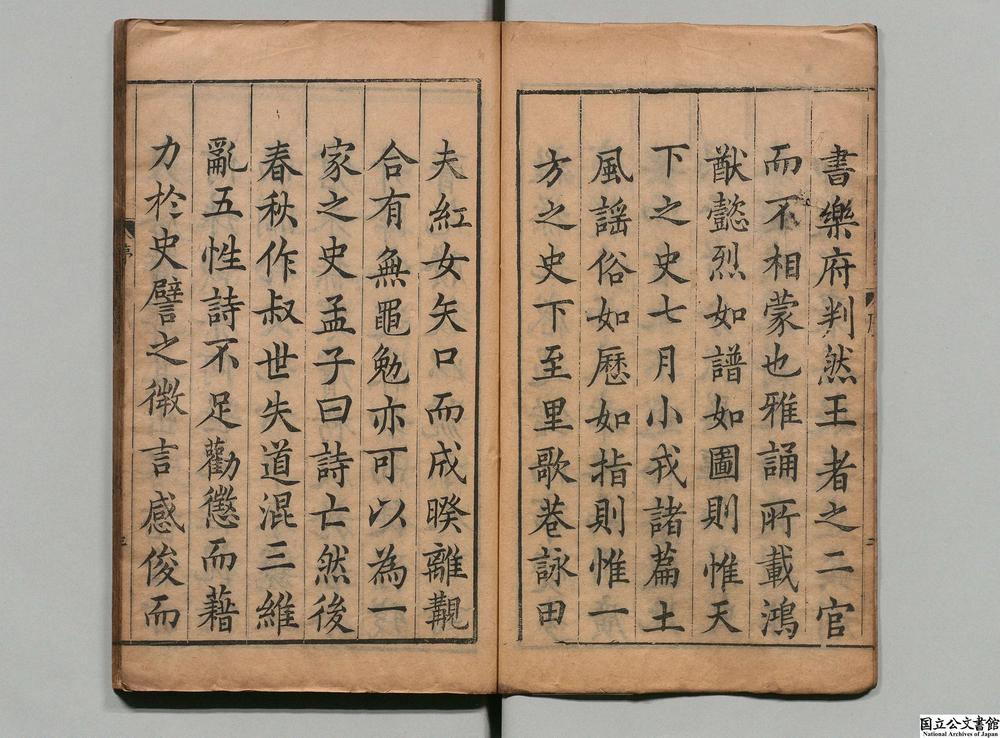 書樂府判然王者之二官
而不相蒙也雅誦所載鴻
猷懿烈如譜如圖則惟天
下之史七月小戎諸篇土
風謡俗如歷如指則惟一
方之史下至里歌巷詠田
夫紅女矢口而成暌離覯
合有無黽勉亦可以為一
家之史孟子曰詩亡然後
春秋作叔世失道混三維
亂五性詩不足勸懲而藉
力於史譬之微言感俊而
序
二
三
国立公文書館
National Archives of Japan